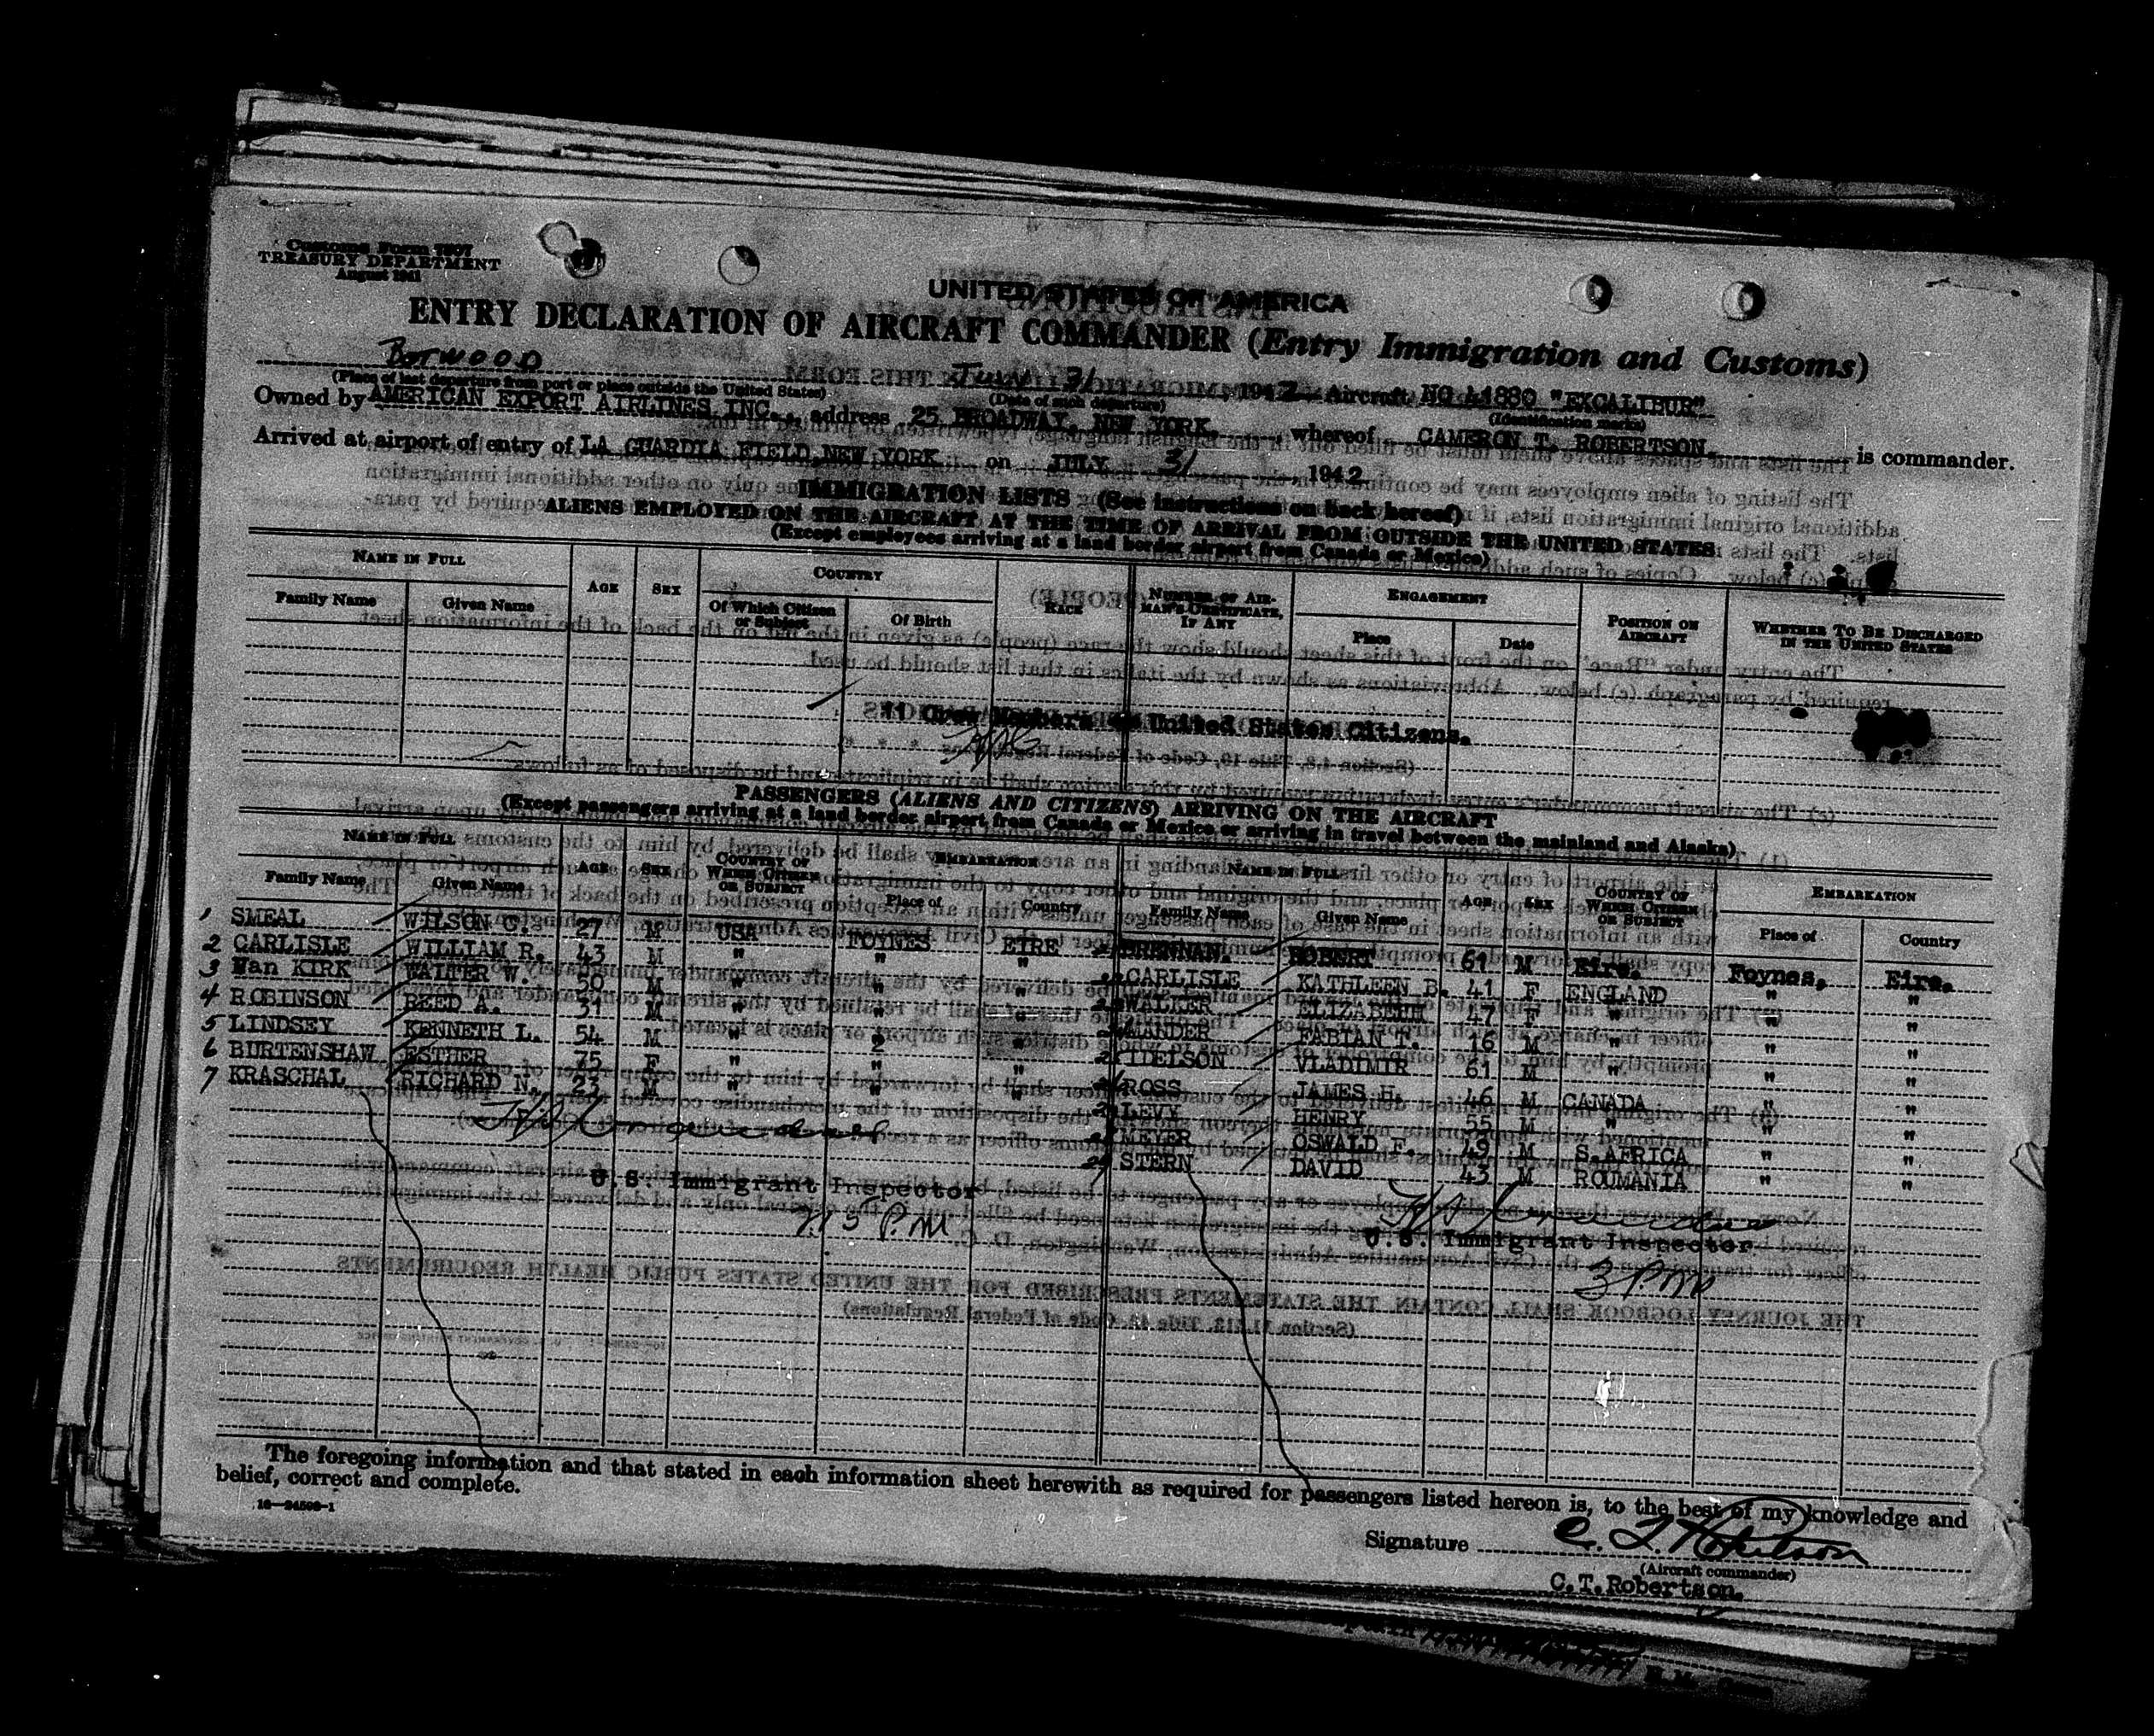 Customs Form 7507
TREASURY DEPARTMENT
August 1941
UNITED STATES OF AMERICA
ENTRY DECLARATION OF AIRCRAFT COMMANDER (Entry Immigration and Customs)
BOTWOOD July 31, 1942 Aircraft NC 41880 "EXCALIBUR"
(Place of last departure from port or place outside the United States) (Date of such departure) (Identification marks)
Owned by AMERICAN EXPORT AIRLINES INC., address 25 BROADWAY, NEW YORK whereof CAMERON T. ROBERTSON. is commander.
Arrived at airport of entry of LA GUARDIA FIELD, NEW YORK on JULY 31, 1942
IMMIGRATION LISTS (See instructions on back hereof)
ALIENS EMPLOYED ON THE AIRCRAFT AT THE TIME OF ARRIVAL FROM OUTSIDE THE UNITED STATES
(Except employees arriving at a land border airport from Canada or Mexico)
NAME IN FULL AGE SEX COUNTRY RACE NUMBER OF AIRMAN'S CERTIFICATE, IF ANY ENGAGEMENT POSITION ON AIRCRAFT WHETHER TO BE DISCHARGED IN THE UNITED STATES
Family Name Given Name Of Which Citizen or Subject Of Birth Place Date
11 Crew Members United States Citizens.
PASSENGERS (ALIENS AND CITIZENS) ARRIVING ON THE AIRCRAFT
(Except passengers arriving at a land border airport from Canada or Mexico or arriving in travel between the mainland and Alaska)
NAME IN FULL AGE SEX COUNTRY OF WHICH CITIZEN OR SUBJECT EMBARKATION NAME IN FULL AGE SEX COUNTRY OF WHICH CITIZEN OR SUBJECT EMBARKATION
Family Name Given Name Place of Country Family Name Given Name Place of Country
1 SMEAL WILSON C. 27 M USA FOYNES EIRE BRENNAN. ROBERT 61 M Eire. Foynes, Eire.
2 CARLISLE WILLIAM R. 43 M " " " CARLISLE KATHLEEN B. 41 F ENGLAND " "
3 Van KIRK WALTER W. 50 M " " " WALKER ELIZABETH 47 F " " "
4 ROBINSON REED A. 31 M " " " MANDER FABIAN T. 16 M " " "
5 LINDSEY KENNETH L. 54 M " " " IDELSON VLADIMIR 61 M " " "
6 BURTENSHAW ESTHER 75 F " " " ROSS JAMES H. 46 M CANADA " "
7 KRASCHAL RICHARD N. 23 M " " " LEVY HENRY 55 M " " "
MEYER OSWALD F. 49 M S.AFRICA " "
STERN DAVID 43 M ROUMANIA " "
U.S. Immigrant Inspector
U.S. Immigrant Inspector
3 P.M
The foregoing information and that stated in each information sheet herewith as required for passengers listed hereon is, to the best of my knowledge and
belief, correct and complete.
16—24509-1
Signature C. T. Robertson
(Aircraft commander)
C.T.Robertson.